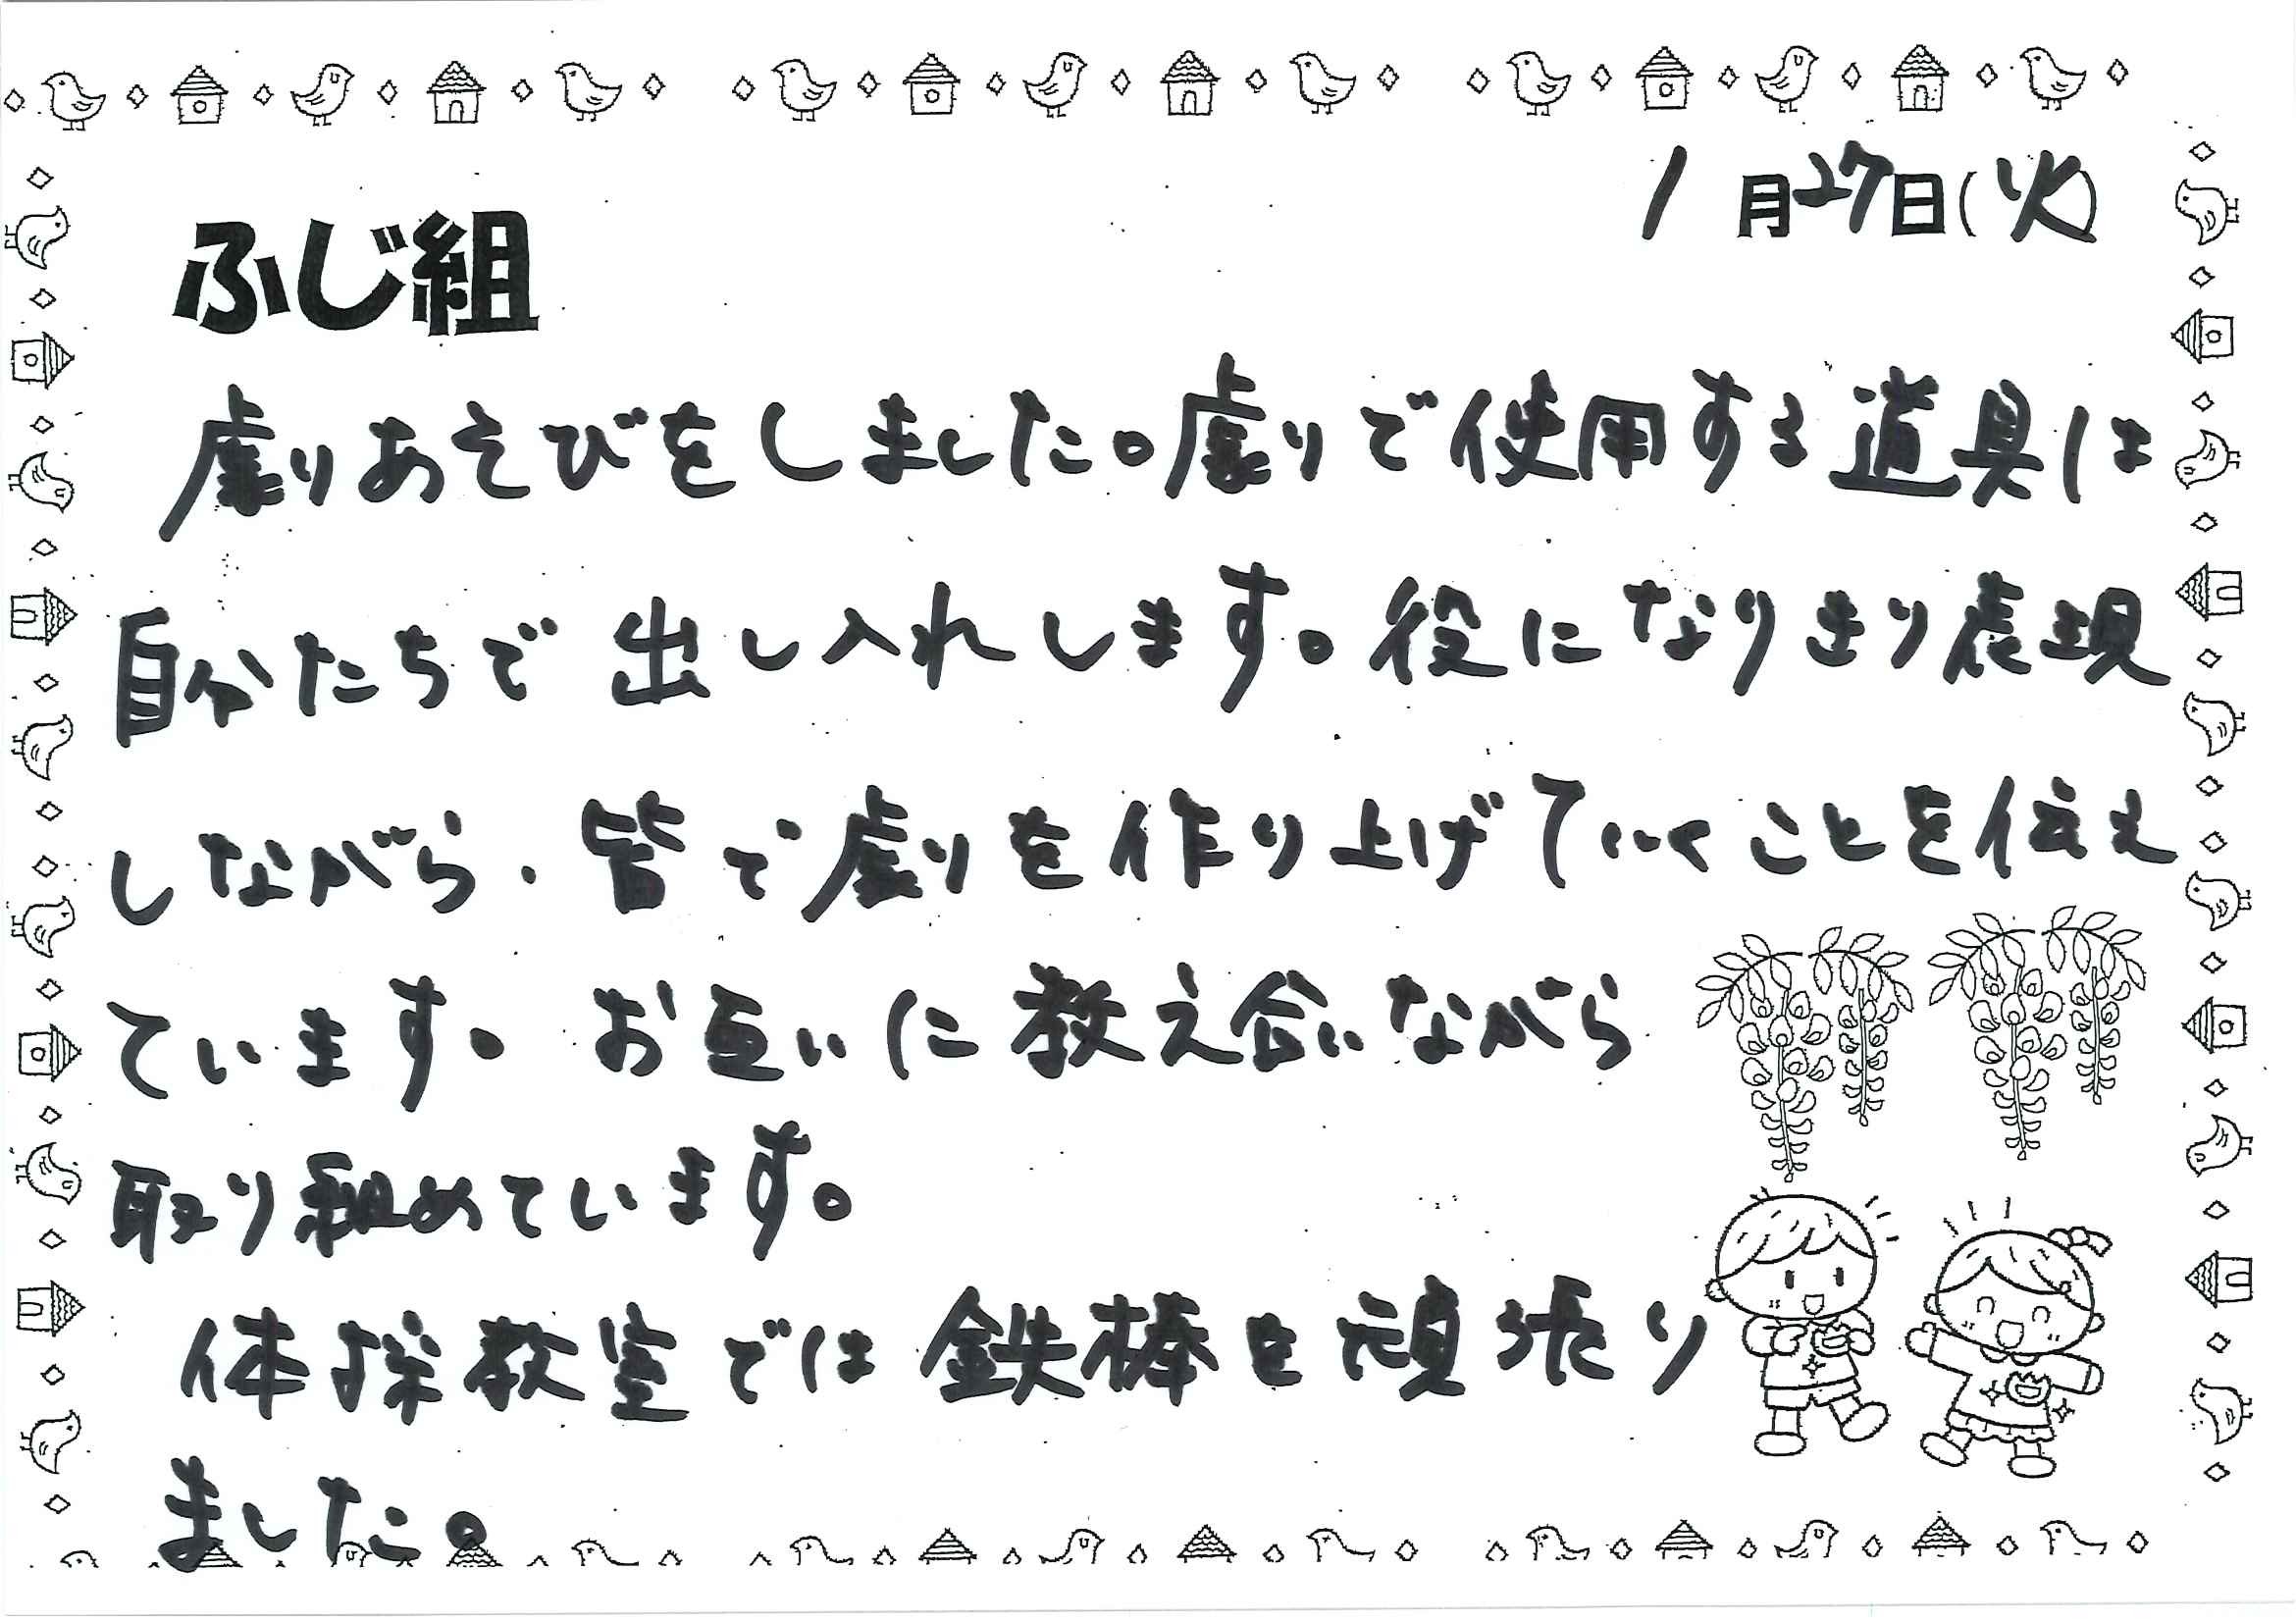 1月27日(火)
ふじ組
劇りあそびをしました。劇りで使用する道具は
自分たちで出し入れします。役になりきり表現
しながら、皆で劇りを作り上げていくことを伝え
ています。お互いに教え合いながら
取り組めています。
体操教室では鉄棒を頑張り
ました。